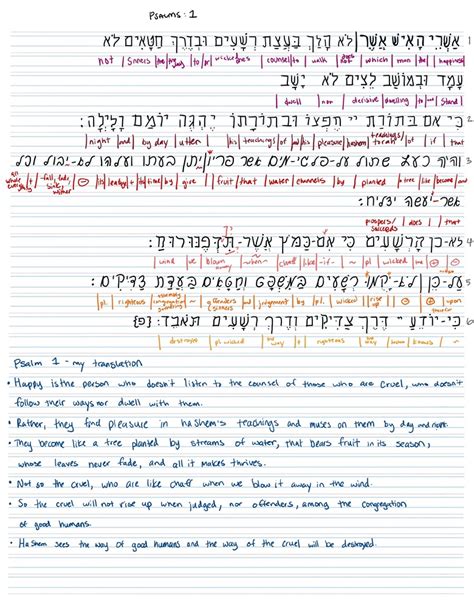 Psalms: 1
אַשְׁרֵי הָאִישׁ אֲשֶׁר לֹא הָלַךְ בַּעֲצַת רְשָׁעִים וּבְדֶרֶךְ חַטָּאִים לֹא 1
not | Sinners | to | wickedness | counsel | to | walk | does not | which | man | the | happiness
עָמָד וּבְמוֹשַׁב לֵצִים לֹא יָשָׁב
dwell | non | derisive | dwelling | to | Stand
כִּי אִם בְּתוֹרַת יי חֶפְצוֹ וּבְתוֹרָתוֹ יֶהְגֶּה יוֹמָם וָלָיְלָה: 2
night | and | by day | utter | his | teachings | of | and | his | pleasure | hashem | teachings/torah | of | if | that
והיה כעץ שתול על-פלגי-מים אשר פריו יתן בעתו ועלהו לא-יבול וכל 3
all whole everything | + | fall, fade, sink, wither | its | leafy | + | its | time | by | give | fruit | that | water | channels | by | planted | a tree | like | become | and
אשר-יעשה יצליח:
prospers/succeeds | does | that
לא-כן הָרְשָׁעִים כִּי אִם-כַּמֹּץ אֲשֶׁר-תִּדְּפֶנּוּ רוּחַ: 4
wind | we | blown | when | chaff | like | if | pl. | wicked | the
עַל-כֵּן לֹא-יָקֻמוּ רְשָׁעִים בַּמִּשְׁפָּט וְחַטָּאִים בַּעֲדַת צַדִּיקִים: 5
pl. | righteous | congregation | offenders | and | judgement | by | pl. | wicked | rise up | upon
כִּי-יוֹדֵעַ יי דֶּרֶךְ צַדִּיקִים וְדֶרֶךְ רְשָׁעִים תֹּאבֵד: {פ} 6
destroyed | pl. | wicked | way | + | righteous | way | hashem | knows
Psalm 1 - my translation
• Happy is the person who doesn't listen to the counsel of those who are cruel, who doesn't
follow their ways nor dwell with them.
• Rather, they find pleasure in haShem's teachings and muses on them by day and night.
• They become like a tree planted by streams of water, that bears fruit in its season,
whose leaves never fade, and all it makes thrives.
• Not so the cruel, who are like chaff when we blow it away in the wind.
• So the cruel will not rise up when judged, nor offenders, among the congregation
of good humans.
• HaShem sees the way of good humans and the way of the cruel will be destroyed.